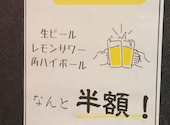 生ビール
レモンサワー
角ハイボール
なんと半額！